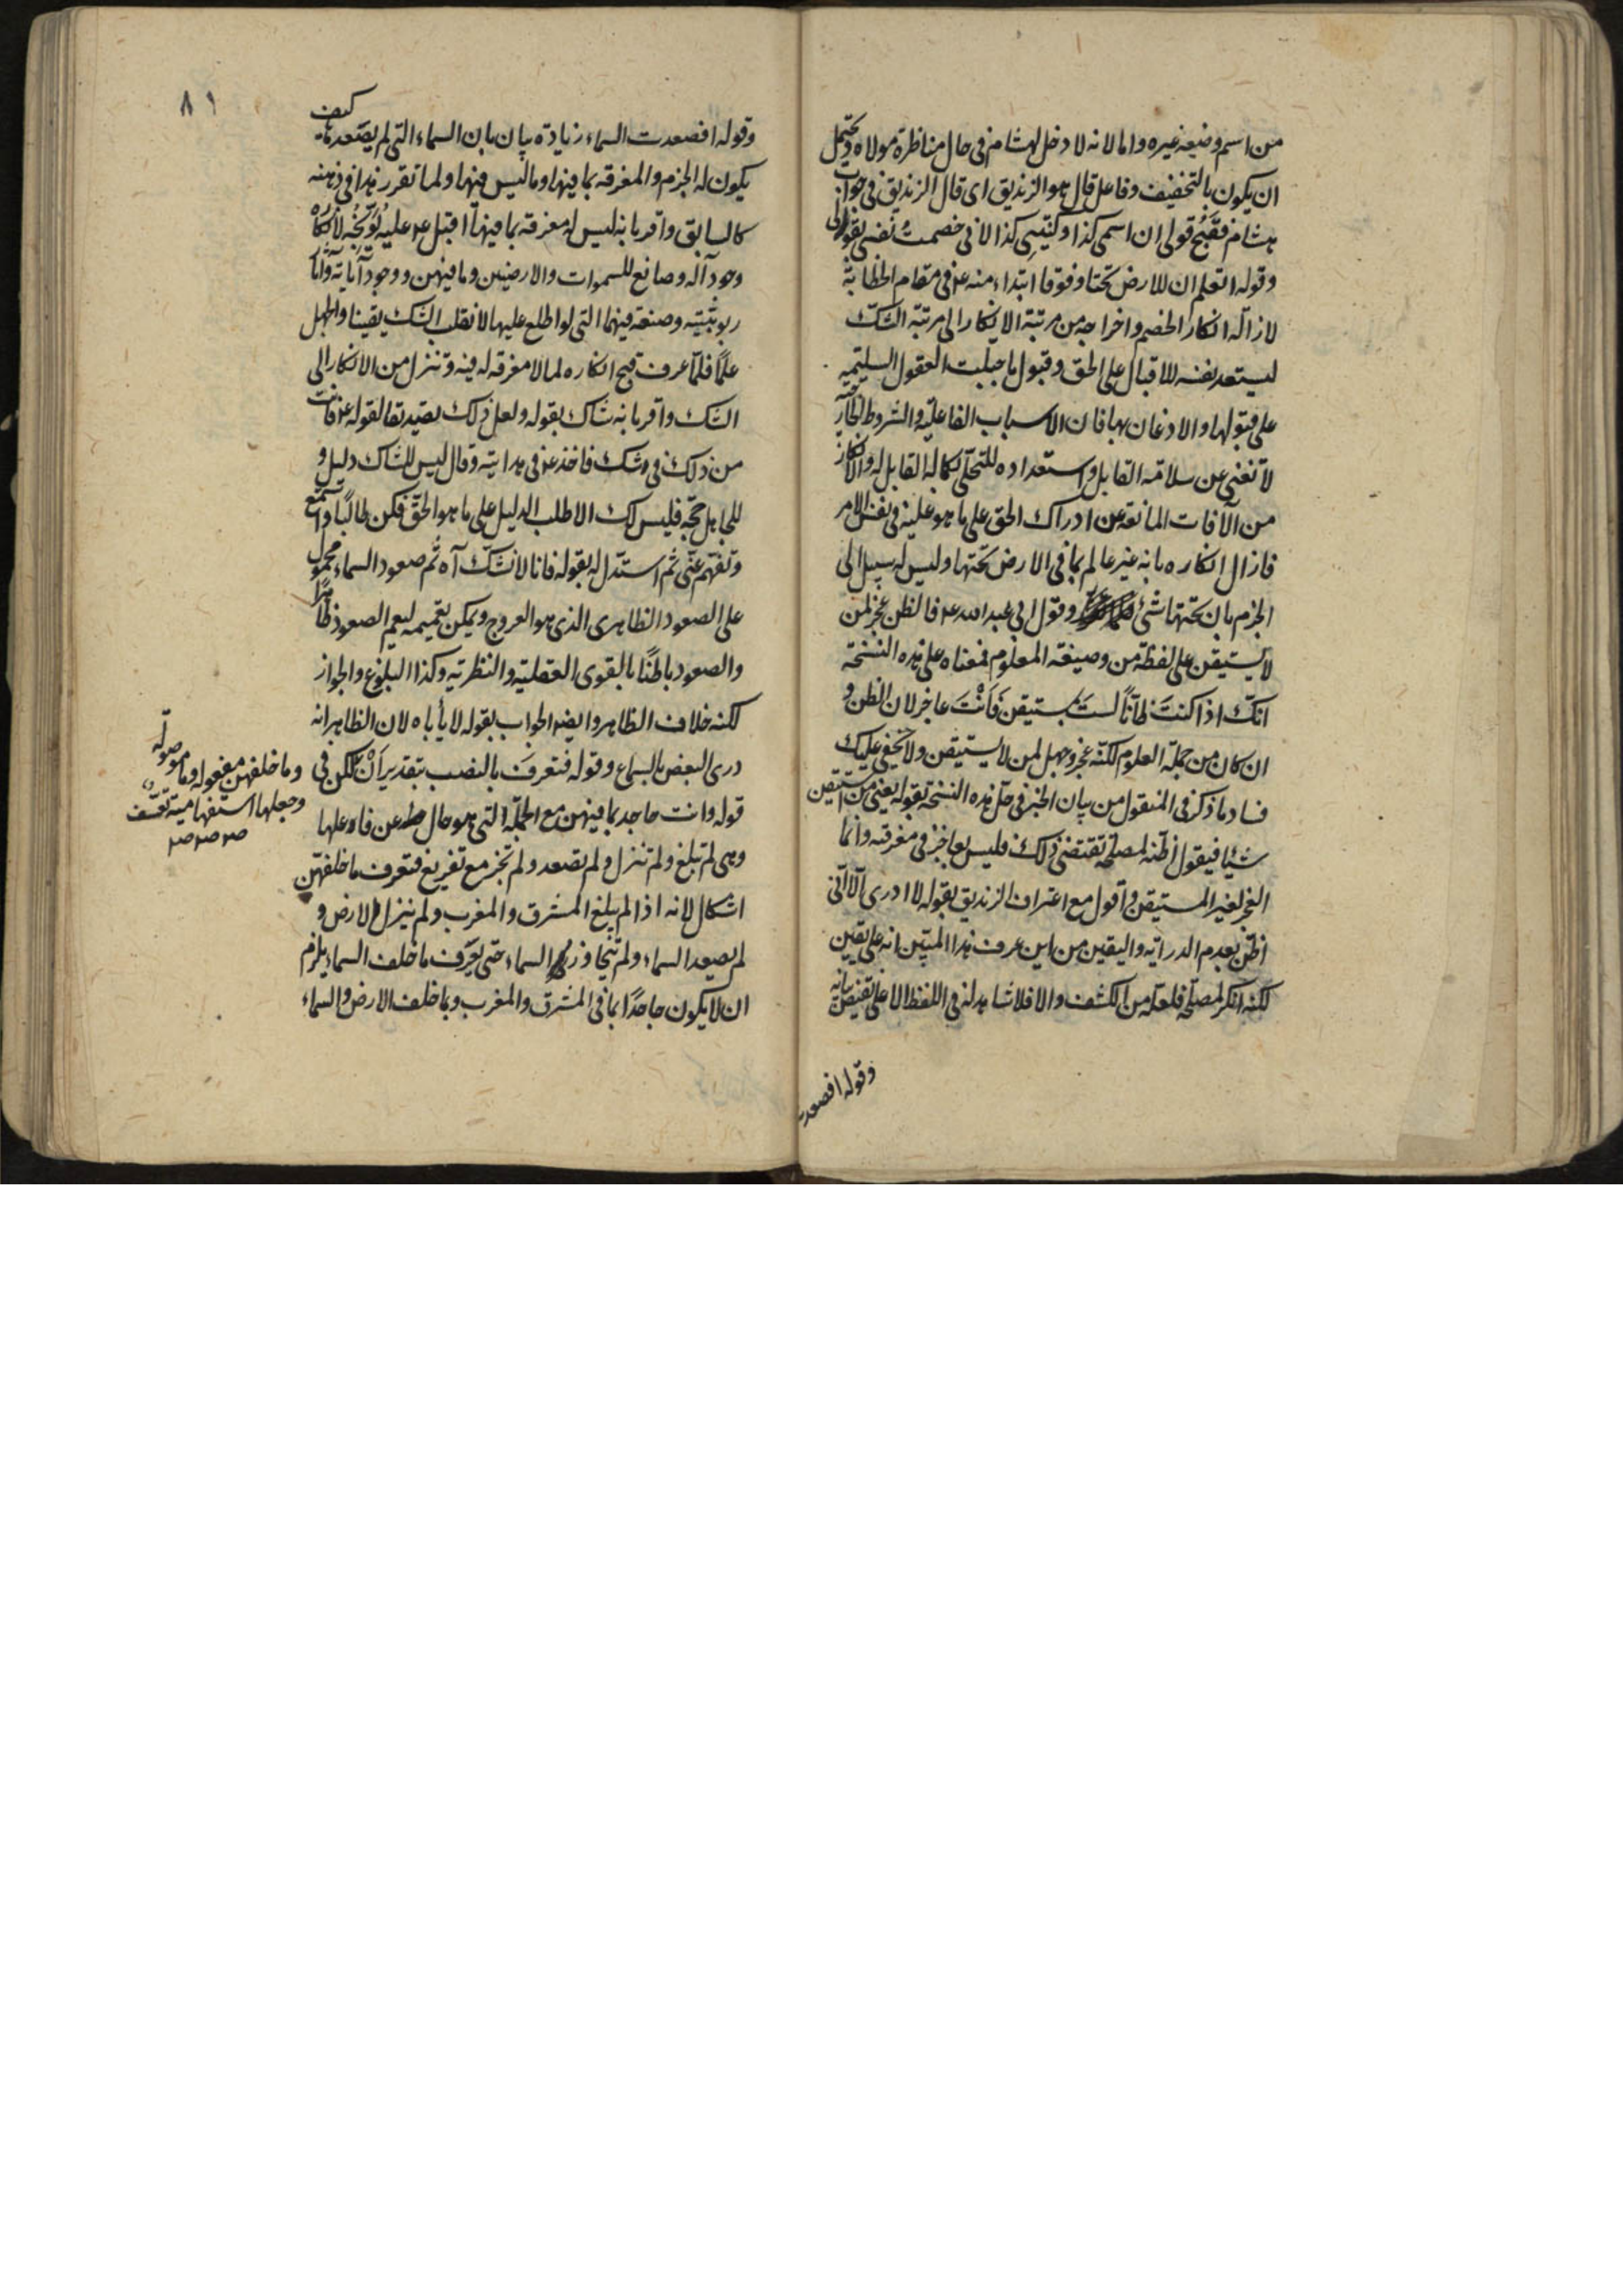 من اسم وضيعه غيره واما لانه لا دخل لهشام في حال مناظرة مولاه ويحتمل
ان يكون بالتخفيف وفاعل قال هو الزنديق اى قال الزنديق في جواب
هشام فقبح قولى ان اسمى كذا وكنيتى كذا لانى خصمت نفسى بقولى
وقوله اتعلم ان للارض تحتا وفوقا ابتداء منه ع في مقام الخطابة
لازالة انكار الخصم واخراجه من مرتبة الانكار الى مرتبة الشك
ليستعد نفسه للاقبال على الحق وقبول ما جبلت العقول السليمه
على قبولها والاذعان بها فان الاسباب الفاعلية والشروط الخارجية
لا تغنى عن سلامة القابل واستعداده للتحلى بكماله القابل له والانكار
من الآفات المانعة عن ادراك الحق على ما هو عليه في نفس الامر
فازال انكاره بانه غير عالم بما في الارض تحتها وليس له سبيل الى
الجزم بان تحتها شئ وقول ابى عبد الله ع فالظن عجز لمن
لا يستيقن على لفظة من وصيغة المعلوم فمعناه على هذه النسخة
انك اذا كنتَ ظانّاً لستَ بمستيقن فَاَنْتَ عاجز لان الظن و
ان كان من جملة العلوم لكنه عجز وجهل لمن لا يستيقن ولا يخفى عليك
فساد ما ذكر في المنقول من بيان الخبر في حل هذه النسخة بقوله يعنى من استيقن
شيئا فيقول اظنه لمصلحة تقتضى ذلك فليس بعاجز في معرفته وانما
العجز لغير المستيقن واقول مع اعتراف الزنديق بقوله لا ادرى الا انى
اظن بعدم الدراية واليقين من اين عرف هذا المبيّن انه على يقين
لكنه انكر لمصلحة فلعله من الكشف والا فلا شاهد له في اللفظ الا على نقيض بيانه
وقوله افصعدت
٨١
وقوله افصعدت السماء زيادة بيان بان السماء التى لم يصعدها كيف
يكون له الجزم والمعرفه بما فيها وما ليس فيها ولما تقرر هذا في ذهنه
كالسابق واقر بانه ليس له معرفة بما فيها اقبل ع عليه يُوَبِّخُه لانكاره
وجود آله وصانع للسموات والارضين وما فيهن ووجود آياته وآثار
ربوبيته وصنعه فيهما التى لو اطلع عليها لانقلب الشك يقينا والجهل
علمًا فلمّا عرف قبح انكاره لما لا معرفة له فيه وتنزل من الانكار الى
الشك واقر بانه شاك بقوله ولعل ذلك تصديقا لقوله ع فانت
من ذلك في شك فاخذ ع في هدايته وقال ليس للشاك دليل و
للجاهل حجة فليس لك الا طلب الدليل على ما هو الحق فكن طالبًا واستمع
وتفهم عنّى ثم استدل له بقوله فانا لا نشك آه ثم صعود السماء محمول
على الصعود الظاهرى الذى هو العروج ويمكن تعميمه ليعم الصعود ظاهرًا
والصعود باطنًا بالقوى العقلية والنظرية وكذا البلوغ والجواز
لكنه خلاف الظاهر وايضا الجواب بقوله لا يأباه لان الظاهر انه
درى البعض بالسماع وقوله فتعرفَ بالنصب بتقدير اَنْ لكن في
قوله وانت جاحد بما فيهن مع الجملة التى هو حال عن فاعلها
وهى لم تبلغ ولم تنزل ولم تصعد ولم تجز مع تفريع فتعرف ما خلفهن
اشكال لانه اذا لم يبلغ المشرق والمغرب ولم ينزل الارض و
لم يصعد السماء ولم يتجاوز السماء حتى يعرف ما خلف السماء يلزم
ان لا يكون جاحدًا بما في المشرق والمغرب وبما خلف الارض والسماء
وما خلفهن مفعوله وما موصولة
وجعلها استفهامية تعسف